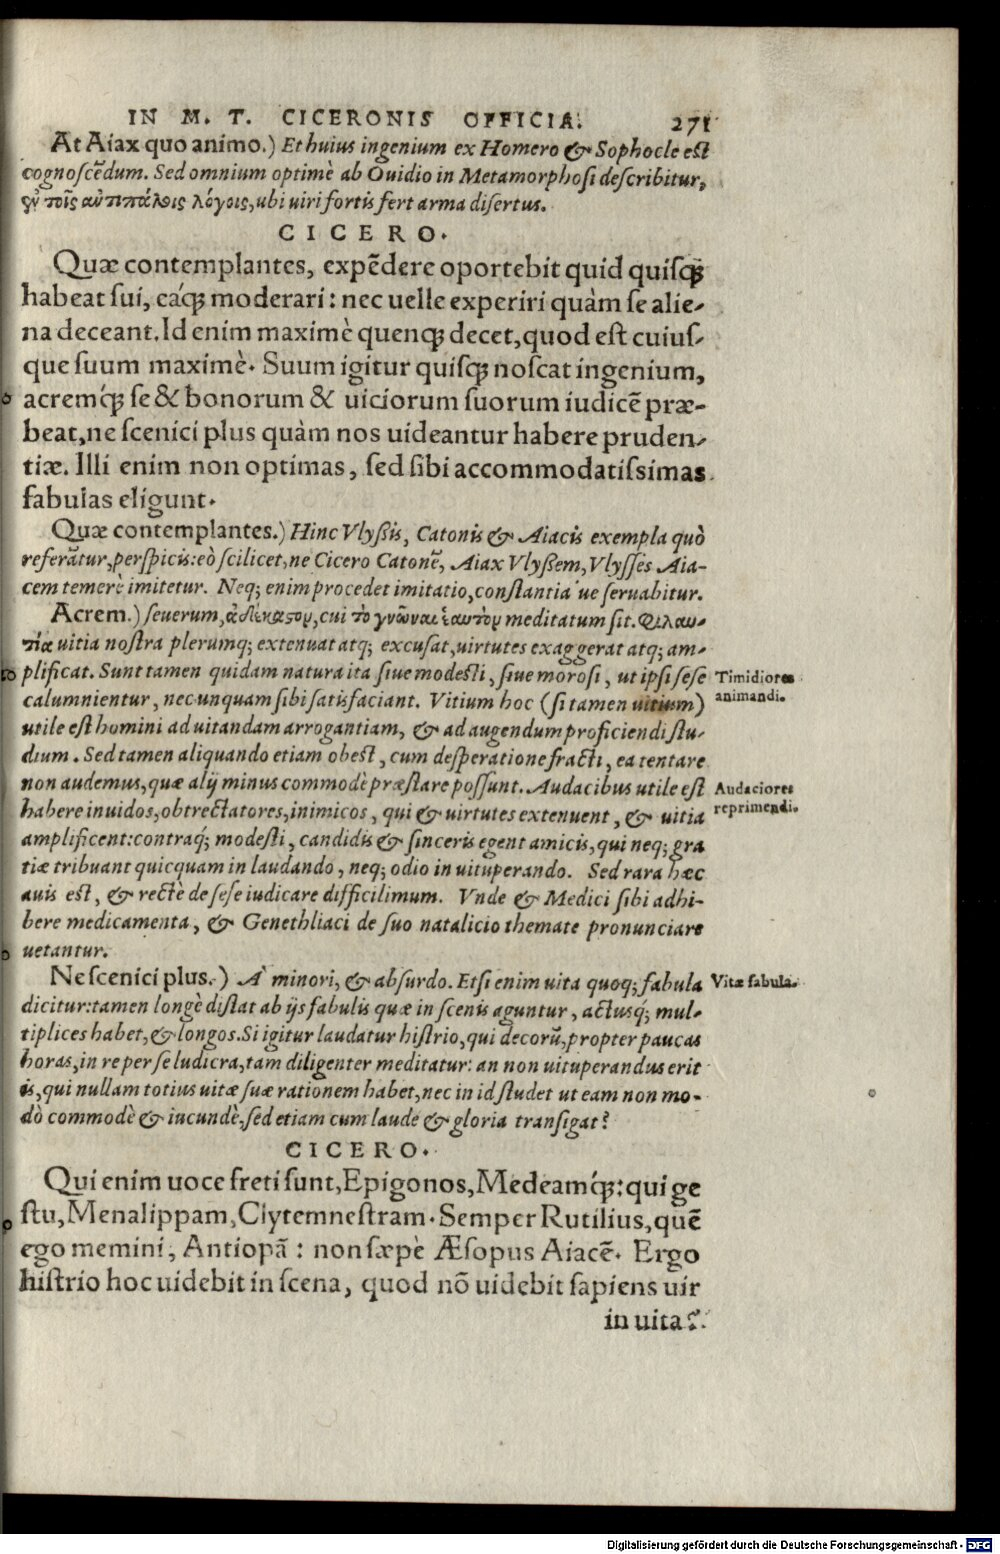 IN M. T. CICERONIS OFFICIA. 271
At Aiax quo animo.) Et huius ingenium ex Homero & Sophocle est
cognoscẽdum. Sed omnium optimè ab Ouidio in Metamorphosi describitur,
λόγοις, ubi uiri fortis fert arma disertus.
CICERO.
Quæ contemplantes, expẽdere oportebit quid quisqꝫ
habeat sui, eáqꝫ moderari: nec uelle experiri quàm se alie-
na deceant. Id enim maximè quenqꝫ decet, quod est cuius-
que suum maximè. Suum igitur quisqꝫ noscat ingenium,
acremq́ꝫ se & bonorum & uiciorum suorum iudicẽ præ-
beat, ne scenici plus quàm nos uideantur habere pruden-
tiæ. Illi enim non optimas, sed sibi accommodatissimas
fabulas eligunt.
Quæ contemplantes.) Hinc Vlyßis, Catonis & Aiacis exempla quò
referãtur, perspicis: eò scilicet, ne Cicero Catonẽ, Aiax Vlyßem, Vlysses Aia-
cem temerè imitetur. Neqꝫ enim procedet imitatio, constantia ùe seruabitur.
Acrem.) seuerum, ἀδέκαστον, cui τὸ γνῶναι ἑαυτὸν meditatum sit. Φιλαυ-
τία uitia nostra plerumqꝫ extenuat atqꝫ excusat, uirtutes exaggerat atqꝫ am-
plificat. Sunt tamen quidam natura ita siue modesti, siue morosi, ut ipsi sese
Timidiores
calumnientur, nec unquam sibi satisfaciant. Vitium hoc (si tamen uitium)
animandi.
utile est homini ad uitandam arrogantiam, & ad augendum proficiendi stu-
dium. Sed tamen aliquando etiam obest, cum desperatione fracti, ea tentare
non audemus, quæ alij minus commodè præstare possunt. Audacibus utile est
Audaciores
habere inuidos, obtrectatores, inimicos, qui & uirtutes extenuent, & uitia
reprimendi.
amplificent: contraq́ꝫ modesti, candidis & sinceris egent amicis, qui neqꝫ gra
tiæ tribuant quicquam in laudando, neqꝫ odio in uituperando. Sed rara hæc
auis est, & rectè de sese iudicare difficilimum. Vnde & Medici sibi adhi-
bere medicamenta, & Genethliaci de suo natalicio themate pronunciare
uetantur.
Ne scenici plus.) À minori, & absurdo. Etsi enim uita quoqꝫ fabula
Vitæ fabula.
dicitur: tamen longè distat ab ijs fabulis quæ in scenis aguntur, actusq́ꝫ mul-
tiplices habet, & longos. Si igitur laudatur histrio, qui decorũ, propter paucas
horas, in re per se ludicra, tam diligenter meditatur: an non uituperandus erit
is, qui nullam totius uitæ suæ rationem habet, nec in id studet ut eam non mo-
dò commodè & iucundè, sed etiam cum laude & gloria transigat?
CICERO.
Qui enim uoce freti sunt, Epigonos, Medeamq́ꝫ: qui ge
stu, Menalippam, Clytemnestram. Semper Rutilius, quẽ
ego memini, Antiopã: non sæpè Æsopus Aiacẽ. Ergo
histrio hoc uidebit in scena, quod nõ uidebit sapiens uir
in uita?
Digitalisierung gefördert durch die Deutsche Forschungsgemeinschaft - DFG